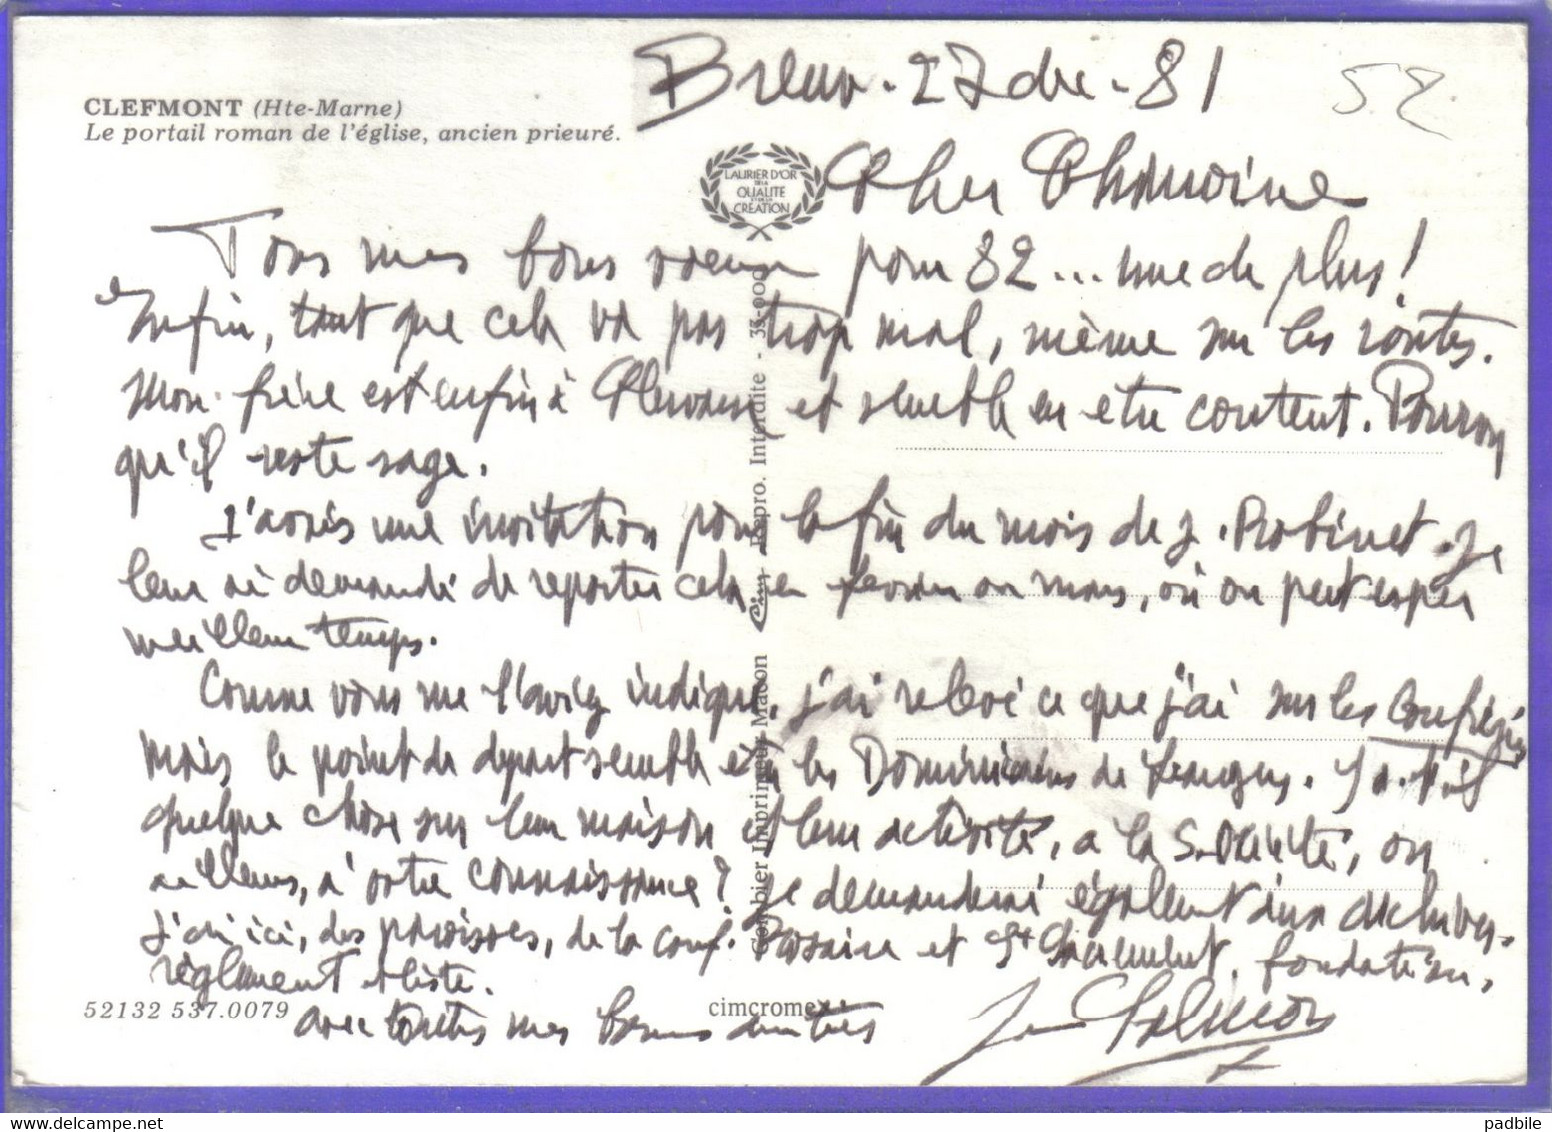 CLEFMONT (Hte-Marne)
Le portail roman de l'église, ancien prieuré.
27 dre. 81
52
LAURIER D'OR
DE LA
QUALITE
ET DE LA
CRÉATION
Cher Chanoine
Tous mes bons voeux pour 82 ... une de plus!
Enfin, tant que cela va pas trop mal, même sur les routes.
Mon frère est enfin à et semble en être content. Pourvu
qu'il reste sage.
J'avais une invitation pour la fin du mois de J. Robinet. Je
leur ai demandé de reporter cela en février ou mars, où on peut espérer
meilleur temps.
Comme vous me l'aviez indiqué, j'ai relevé ce que j'ai sur les Confréries
mais le point de départ semble être les Dominicains de Langres. Y a-t-il
quelque chose sur leur maison et leur activité, à la Société, ou
ailleurs, à votre connaissance? Je demanderai également aux archives.
J'ai ici, des paroisses, de la conf. Rosaire et St Sacrement, fondation,
règlement et liste.
avec toutes mes bonnes amitiés
Combier Imprimeur Macon Cim Repro. Interdite - 33-000
52132 537.0079
cimcrome
padbile